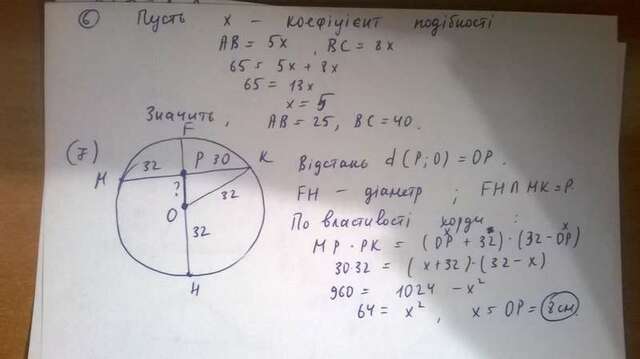 6 Пусть x - коефіцієнт подібності
AB = 5x , BC = 8x
65 = 5x + 8x
65 = 13x
x = 5
Значить, AB = 25, BC = 40.
(7)
F
M 32 P 30 K
?
O 32
32
H
Відстань d(P;O) = OP.
FH - діаметр ; FH ∩ MK = P.
По властивості хорди :
x x
MP · PK = (OP + 32) · (32 - OP)
30·32 = (x+32)·(32-x)
960 = 1024 - x²
64 = x² , x = OP = 8 см